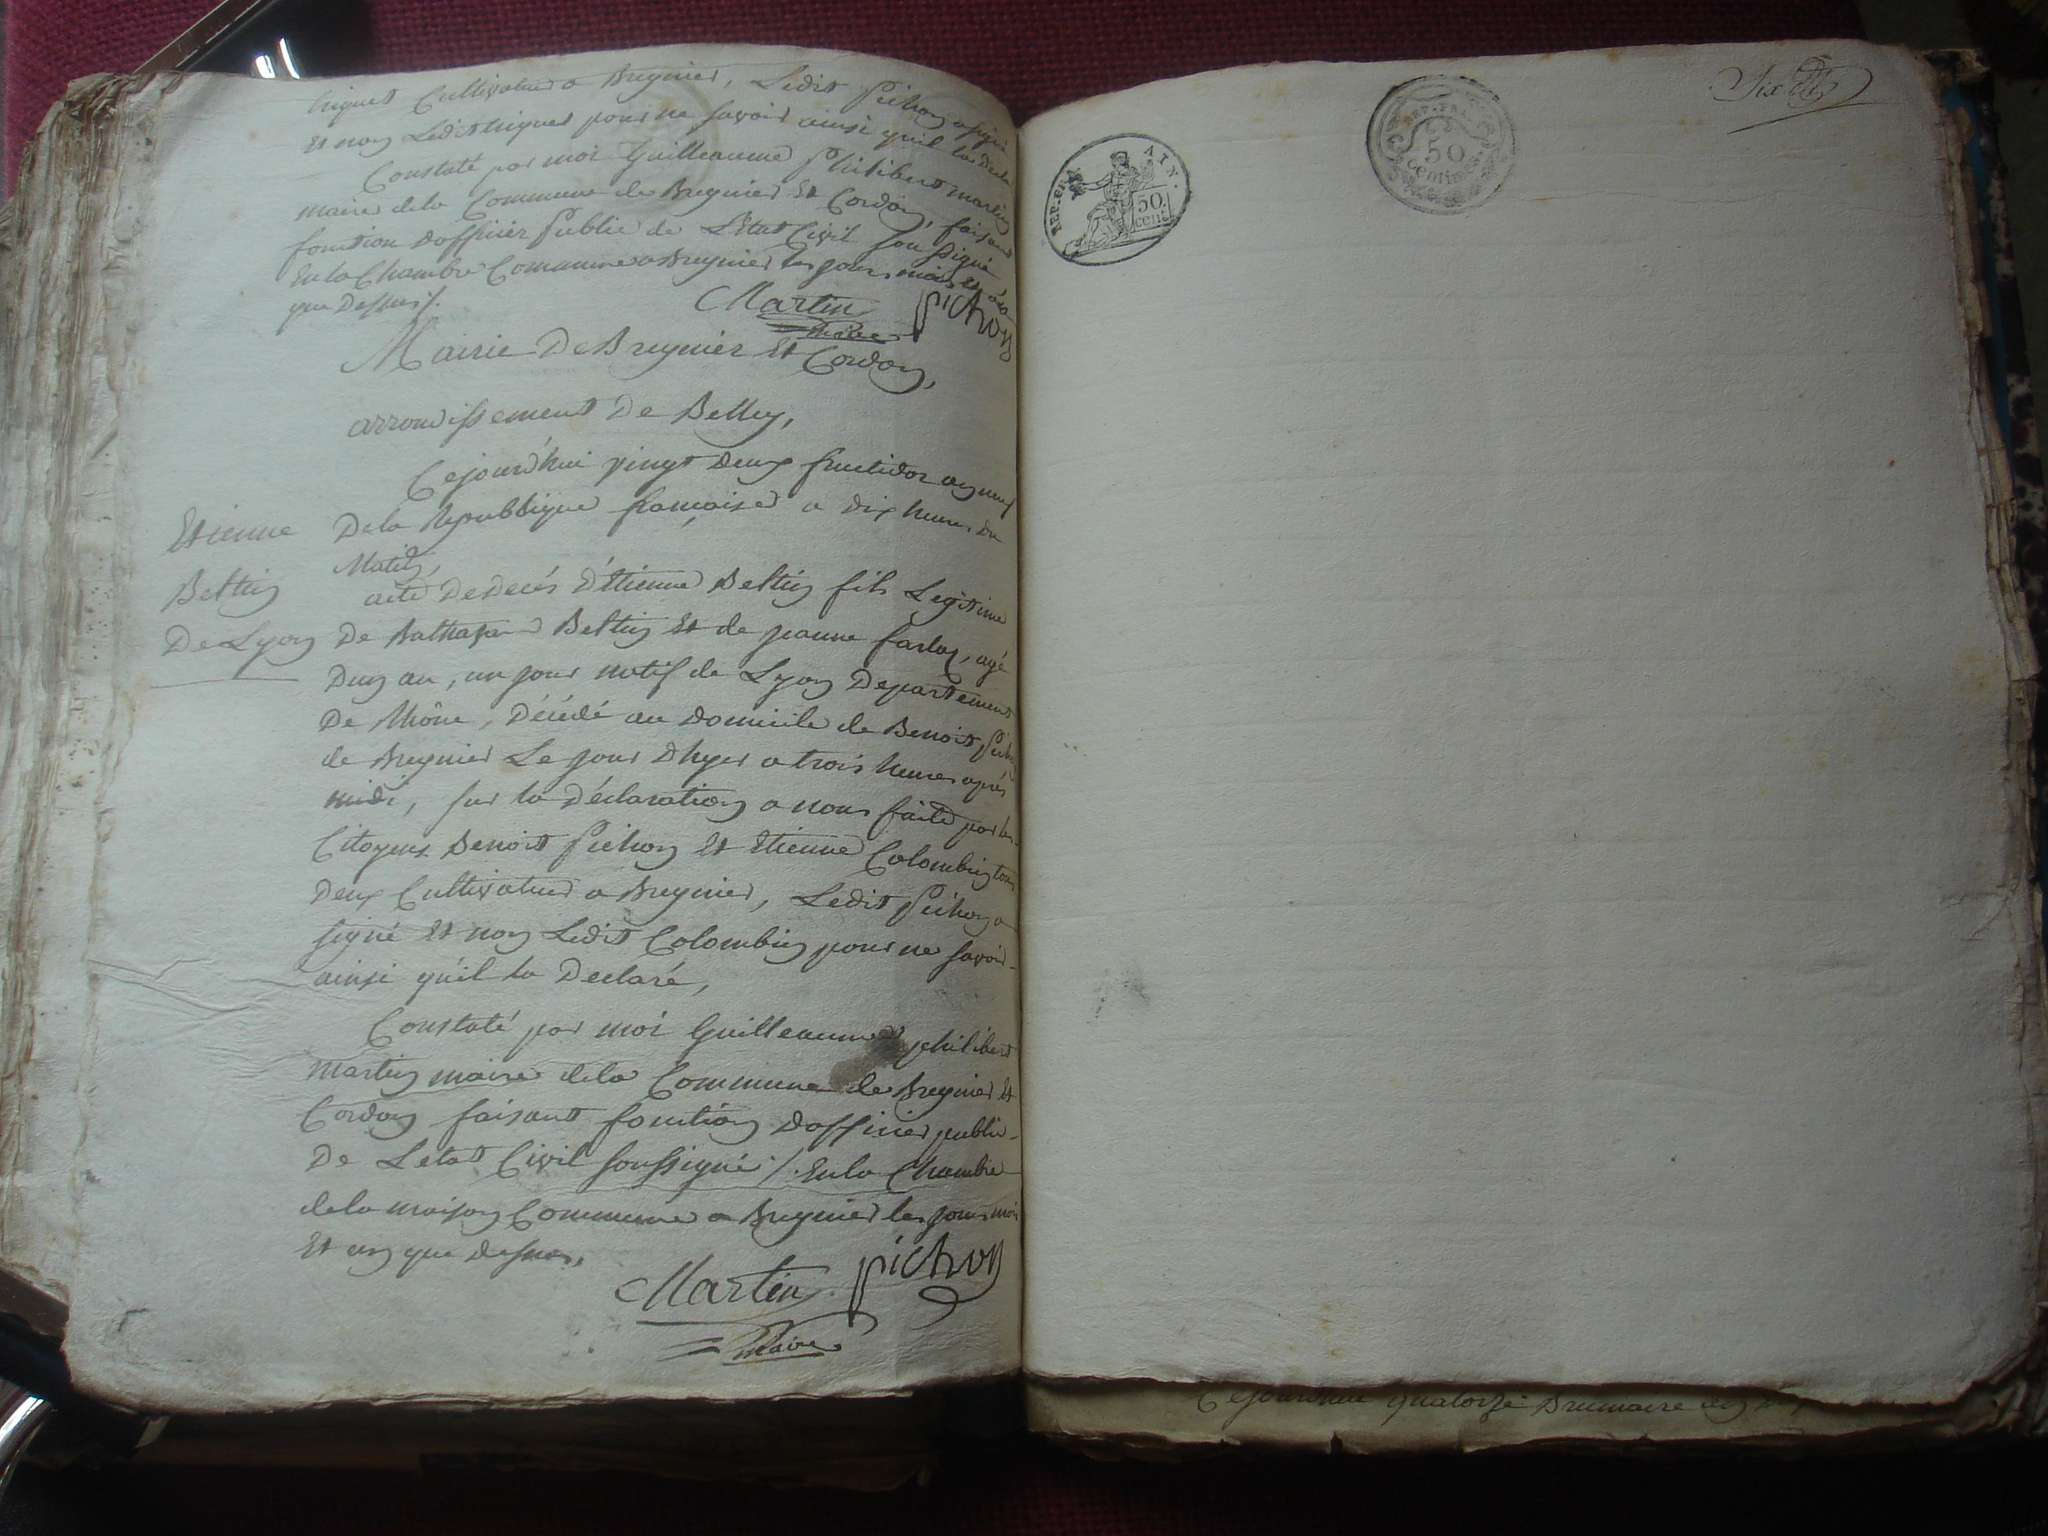 Cultivateur a Bregnier, Ledit Pichon a signé
Et non Ledit pour ne savoir ainsi quil la
Constaté par moi Guilleaume Philibert martin
maire dela Commune de Bregnier Et Cordon, faisant
fonction Dofficier Public de L'Etat Civil Sousigné
En la Chambre Commune a Bregnier les jour mois et an
que Dessus.
Martin pichon
Maire
Mairie De Bregnier Et Cordon,
arrondissement De Belley,
Cejourd'hui vingt Deux fructidor an neuf
Etienne
Bettin
De Lyon
De la Republique francaise a dix heures du
Matin,
acte De Decés d'Etienne Bettin fils Legitime
De Balthazard Bettin Et de jeanne agé
Dun an, un jour natif de Lyon Departement
De Rhône, Décédé au domicile de Benoit
de Bregnier Le jour Dhyer a trois heures aprés
midi, sur la Déclaration a nous faite par les
Citoyens Benoit Pichon Et Etienne Colombin tous
Deux Cultivateur a Bregnier, Ledit Pichon a
signé Et non Ledit Colombin pour ne savoir
ainsi qu'il la Declaré,
Constaté par moi Guilleaume philibert
Martin maire dela Commune de Bregnier Et
Cordon faisant fonction Dofficier public
De Letat Civil soussigné /. En la Chambre
dela maison Commune a Bregnier les jour mois
Et an que dessus,
Martin pichon
Maire
REP. FRA. AIN.
50.
cent.
REP. FRA.
50
centimes
Six
Cejourdhui quatorze Brumaire an